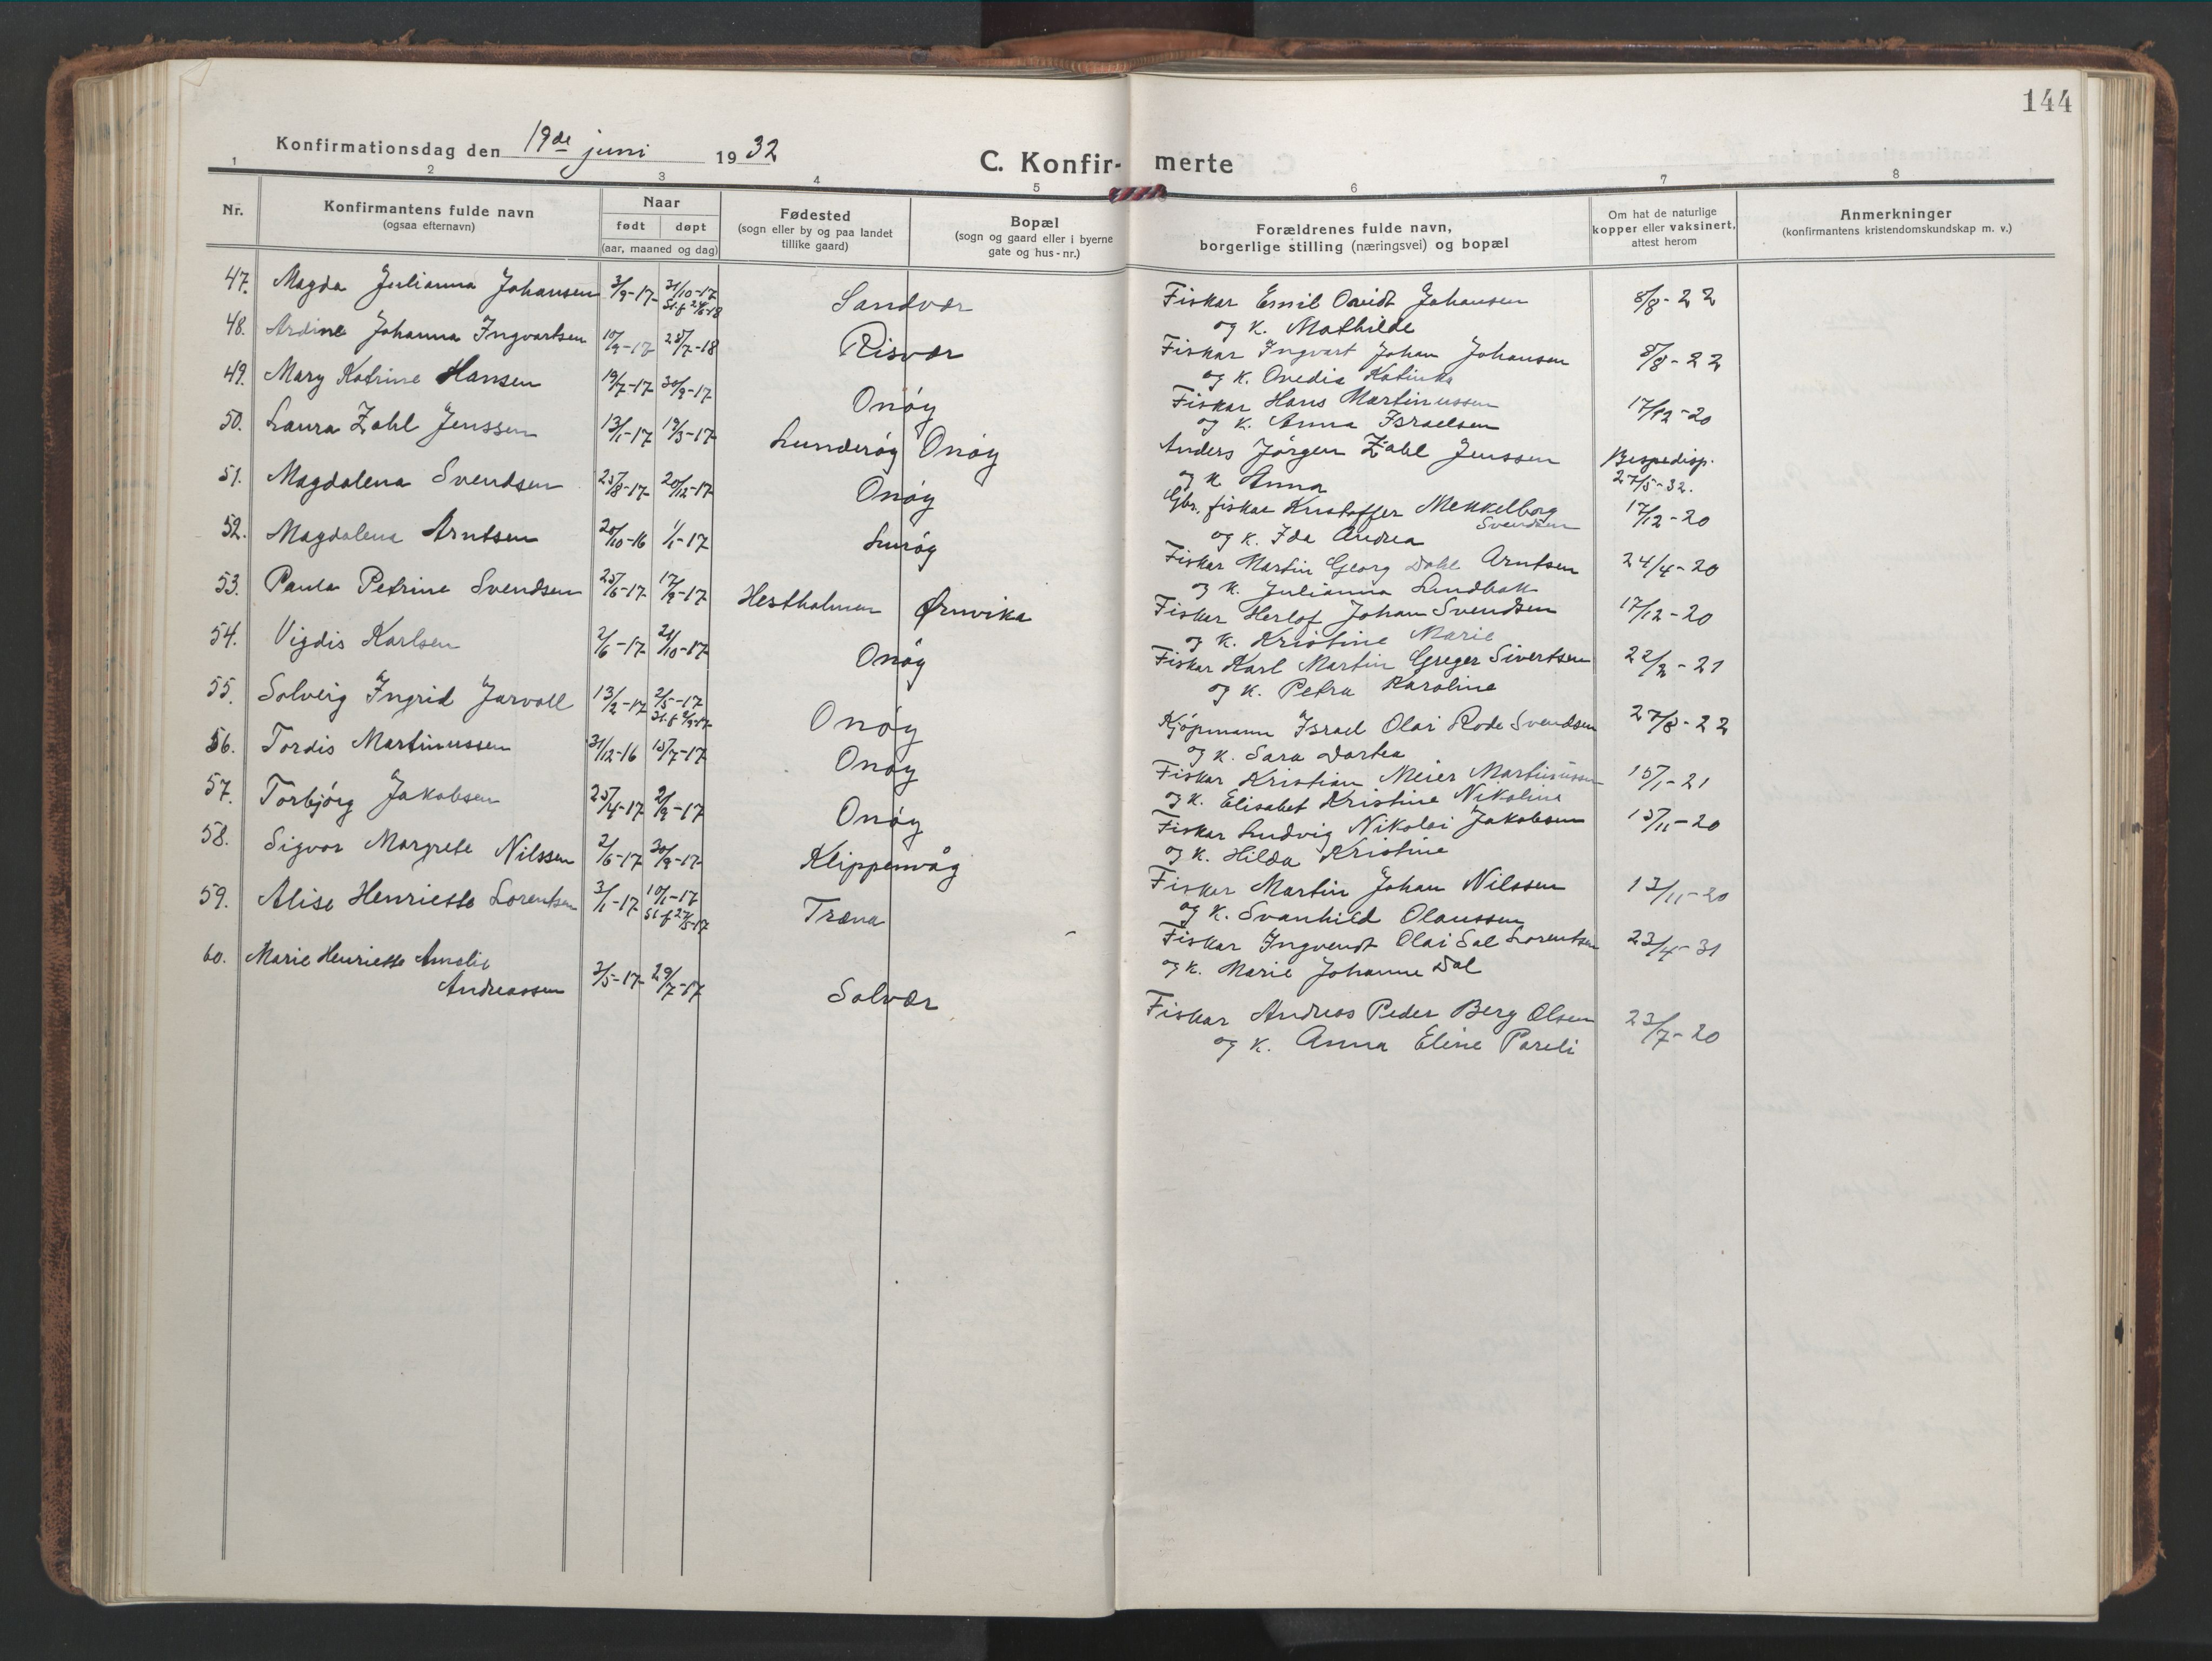 144
Konfirmationsdag den 19de juni 1932
C. Konfir- merte
1 2 3 4 5 6 7 8
Nr.
Konfirmantens fulde navn
(ogsaa efternavn)
Naar
født døpt
(aar, maaned og dag)
Fødested
(sogn eller by og paa landet
tillike gaard)
Bopæl
(sogn og gaard eller i byerne
gate og hus-nr.)
Forældrenes fulde navn,
borgerlige stilling (næringsvei) og bopæl
Om hat de naturlige
kopper eller vaksinert,
attest herom
Anmerkninger
(konfirmantens kristendomskundskap m. v.)
47. Magda Julianna Johansen 3/9-17 31/10-17 Sandvær Fiskar Emil Ovidt Johansen 8/8-22
St. f. 24/6-18 og K. Mathilde
48. Ardine Johanna Ingvartsen 10/9-17 28/7-18 Risvær Fiskar Ingvart Johan Johansen 8/8-22
og K. Ovedia Katinka
49. Mary Katrine Hansen 19/7-17 30/9-17 Onøy Fiskar Hans Martinussen 17/12-20
og K. Anna Israelsen
50. Laura Zahl Jenssen 13/1-17 19/3-17 Lunderøy Onøy Anders Jørgen Zahl Jenssen Bispedisp.
og K Anna 27/5-32.
51. Magdalena Svendsen 25/8-17 20/12-17 Onøy Gbr. fiskar Kristoffer Mekkelborg 17/12-20
Svendsen
og K. Ida Andrea
52. Magdalena Arntsen 20/10-16 1/1-17 Lurøy Fiskar Martin Georg Dahl Arntsen 24/4-20
og K. Julianna Lindbak
53. Paula Petrine Svendsen 25/6-17 17/9-17 Hestholmen Ørnvika Fiskar Herlof Johan Svendsen 17/12-20
og K. Kristine Marie
54. Vigdis Karlsen 2/6-17 21/10-17 Onøy Fiskar Karl Martin Greger Sivertsen 22/2-21
og K. Petra Karoline
55. Solveig Ingrid Jarvoll 13/2-17 2/5-17 Onøy Kjøpmann Israel Olai Rode Svendsen 27/8-22
St. f. 2/9-17 og K. Sara Dortea
56. Tordis Martinussen 31/12-16 15/7-17 Onøy Fiskar Kristian Meier Martinussen 15/1-21
og K. Elisabet Kristine Nikoline
57. Torbjørg Jakobsen 25/4-17 2/9-17 Onøy Fiskar Ludvig Nikolai Jakobsen 15/11-20
og K. Hilda Kristine
58. Sigvor Margrete Nilssen 2/6-17 30/9-17 Klippenvåg Fiskar Martin Johan Nilssen 13/11-20
og K. Svanhild Olaussen
59. Alise Henriette Lorentsen 3/1-17 10/1-17 Træna Fiskar Ingvendt Olai Sal Lorentsen 23/4-31
St. f. 27/5-17 og K. Marie Johanne Dal
60. Marie Henriette Amalie
Andreassen 3/5-17 29/7-17 Solvær Fiskar Andreas Peder Berg Olsen 23/7-20
og K. Anna Eline Pareli